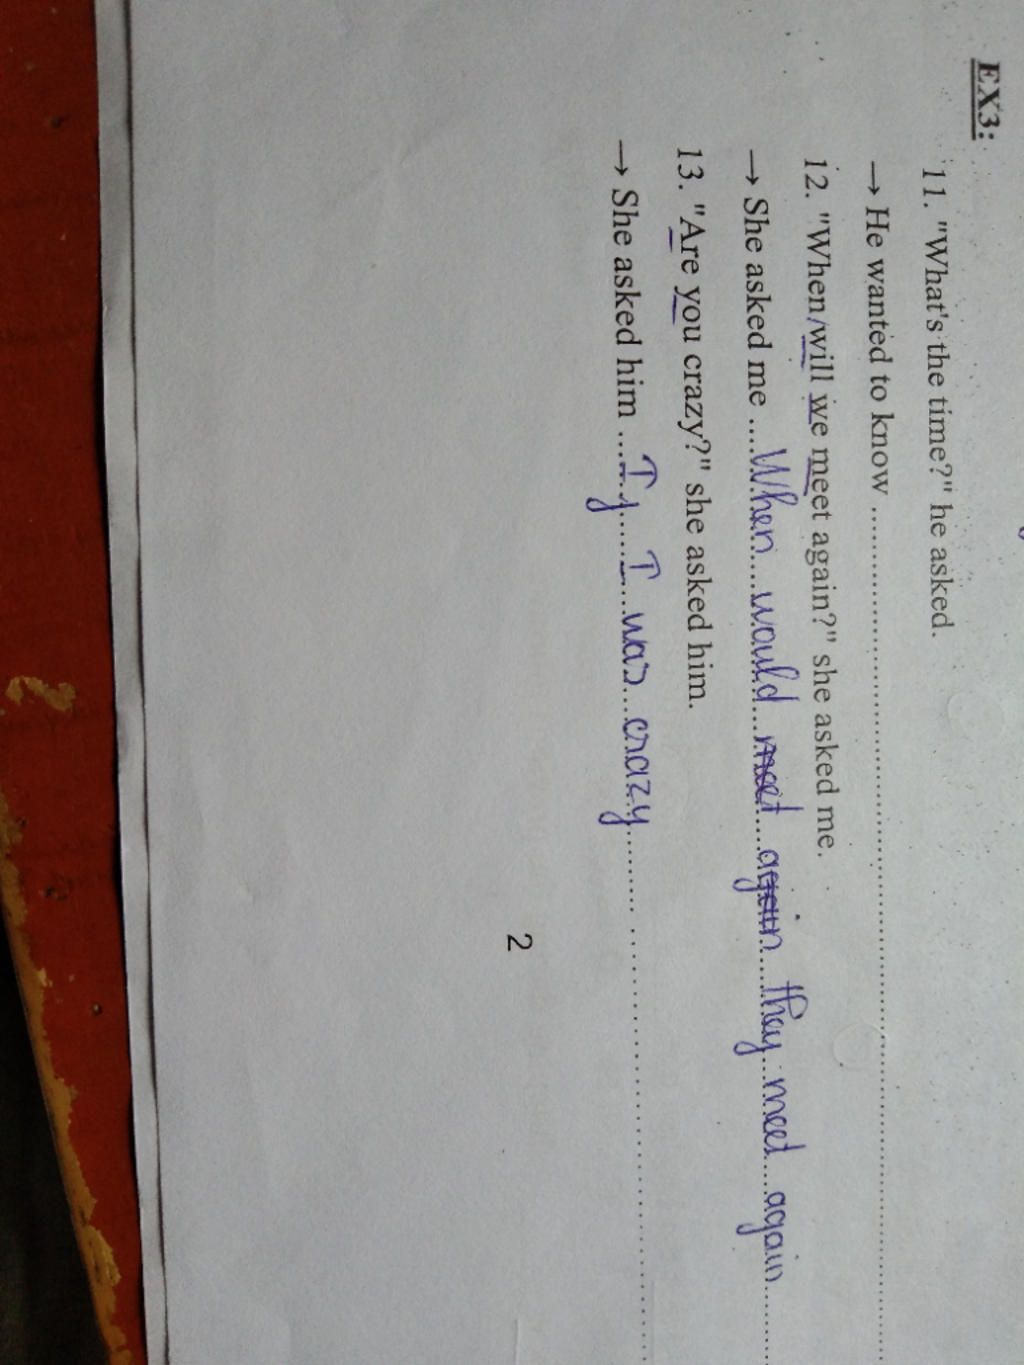 EX3:
11. "What's the time?" he asked.
→ He wanted to know ........................................................................
12. "When will we meet again?" she asked me.
→ She asked me ....When would meet again they meet again......
13. "Are you crazy?" she asked him.
→ She asked him ...If I was crazy..............................
2